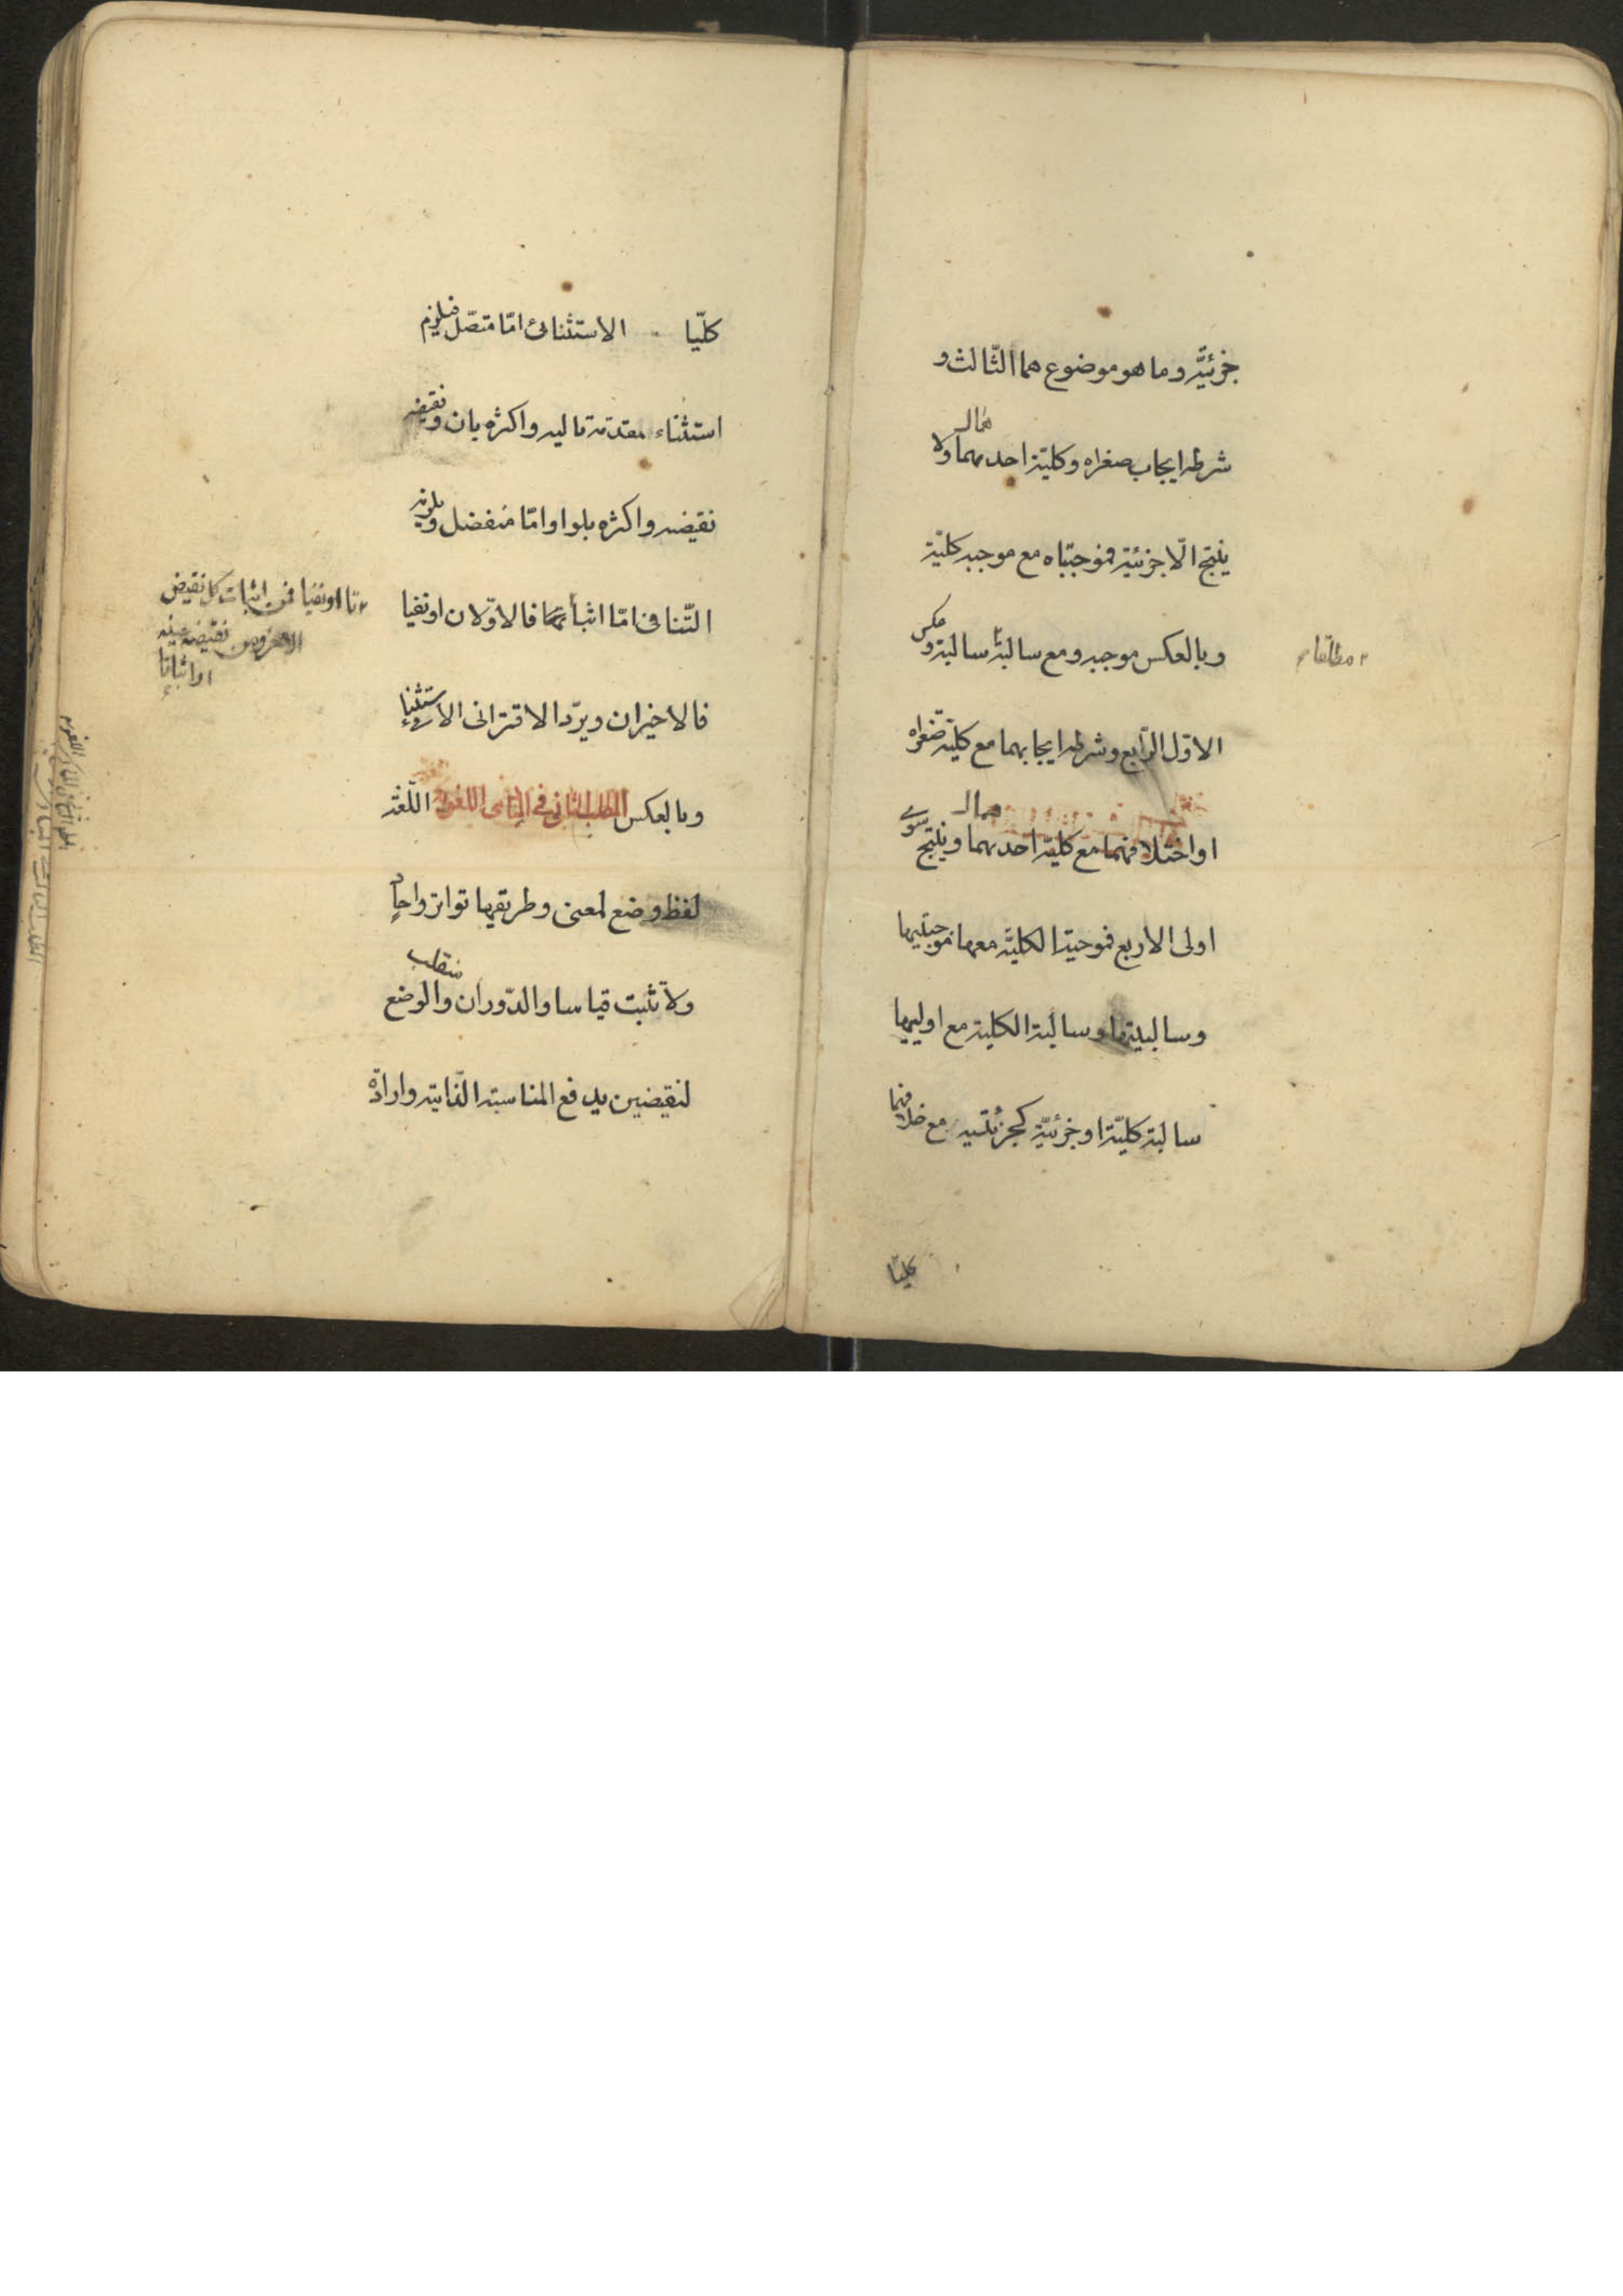 جزئيّة وما هو موضوع هما الثّالث و
شرطه ايجاب صغراه وكليّة احديهما ولا
ينتج الّا جزئية فموجبتاه مع موجبه كليّة
وبالعكس موجبه ومع سالبة سالبة و عكس
الاوّل الرّابع وشرطه ايجابهما مع كليّة صغراه
او اختلافهما مع كليّة احديهما وينتج سوى
اولى الاربع فموجبة الكليّة معها موجبتيها
وسالبيتها وسالبة الكلية مع اوليها
سالبة كليّة او جزئيّة كجزئيّتيه مع خلافها
كليّا
كليّا الاستثنائى امّا متصّل فيلزم
استثناء مقدّمة تاليه واكثره بان ونقيضه
نقيضه واكثره بلو او امّا منفصل ويلزمه
التّنافى امّا اثباتا فالاوّلان او نفيا
فالاخيران ويردّ الاقترانى الاستثنا
وبالعكس المطلب الثانى فى المبادى اللغوية اللّغة
لفظ وضع لمعنى وطريقها تواتر واحاد
ولا تثبت قياسا والدّوران منقلب والوضع
لنقيضين يدفع المناسبة الذّاتية وارادة
تا او نفيا فمن اثبات كل نقيض
نقيضه عينه
او اثباتا